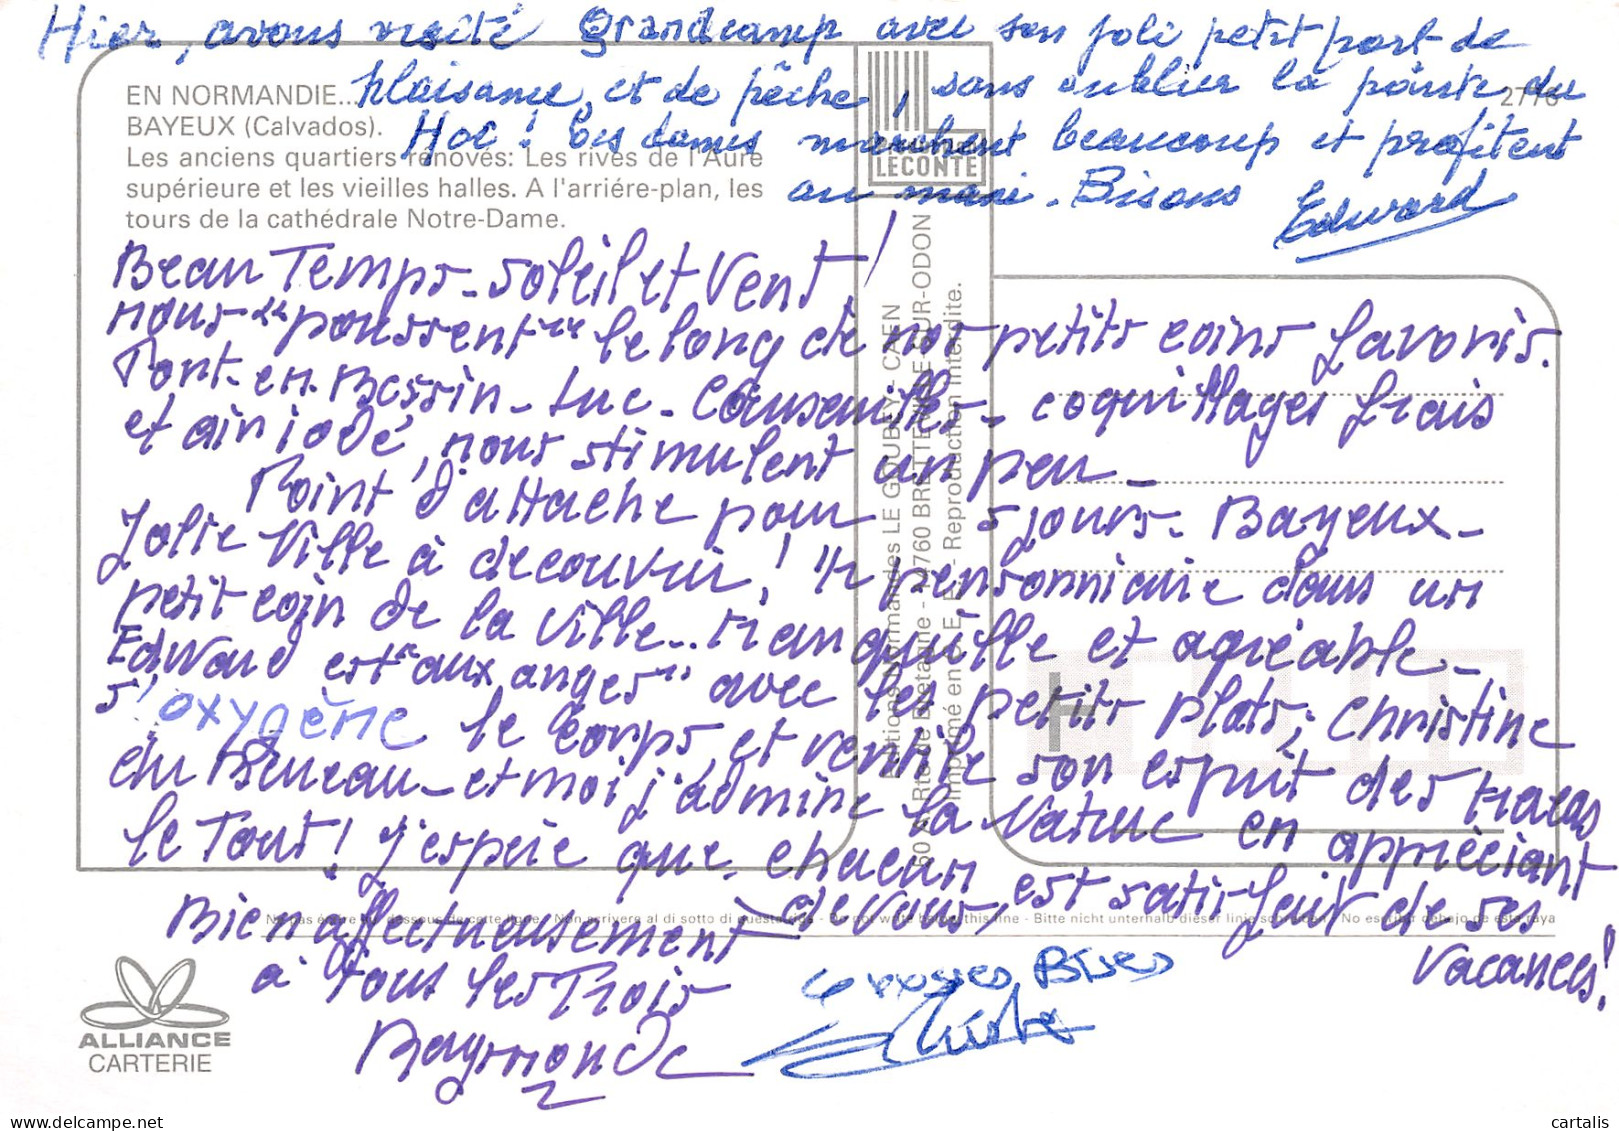 Hier, avons visité Grandcamp avec son joli petit port de
plaisance, et de pêche, sans oublier la pointe du
Hoc! Ces dames marchent beaucoup et profitent
au maxi. Bisous Edward
EN NORMANDIE...
BAYEUX (Calvados).
Les anciens quartiers rénovés: Les rives de l'Aure
supérieure et les vieilles halles. A l'arriére-plan, les
tours de la cathédrale Notre-Dame.
2776
LECONTE
Editions Normandes LE GOUBEY - CAEN
60 Rte de Bretagne - 14760 BRETTEVILLE-SUR-ODON
Imprimé en C.E.E. - Reproduction interdite.
Beau Temps - Soleil et Vent!
nous "poussent" le long de nos petits coins favoris.
Port-en-Bessin - Luc - Courseulles - coquillages frais
et air iodé, nous stimulent un peu -
Point d'attache pour 5 jours - Bayeux -
Jolie Ville à découvrir! 1/2 pensionnaire dans un
petit coin de la Ville... tranquille et agréable -
Edward est "aux anges" avec les petits plats; Christine
s'oxygène le corps, et ventile son esprit des tracas
du Bureau - et moi j'admire la Nature en appréciant
le Tout! J'espère que chacun
de vous, est satisfait de ses
Vacances!
Bien affectueusement
à tous les Trois
Raymonde
Grosses Bises
Ne pas écrire au dessous de cette ligne - Non scrivere al di sotto di questa riga - Do not write below this line - Bitte nicht unterhalb dieser linie schreiben - No escribir debajo de esta raya
ALLIANCE
CARTERIE
www.delcampe.net
cartalis